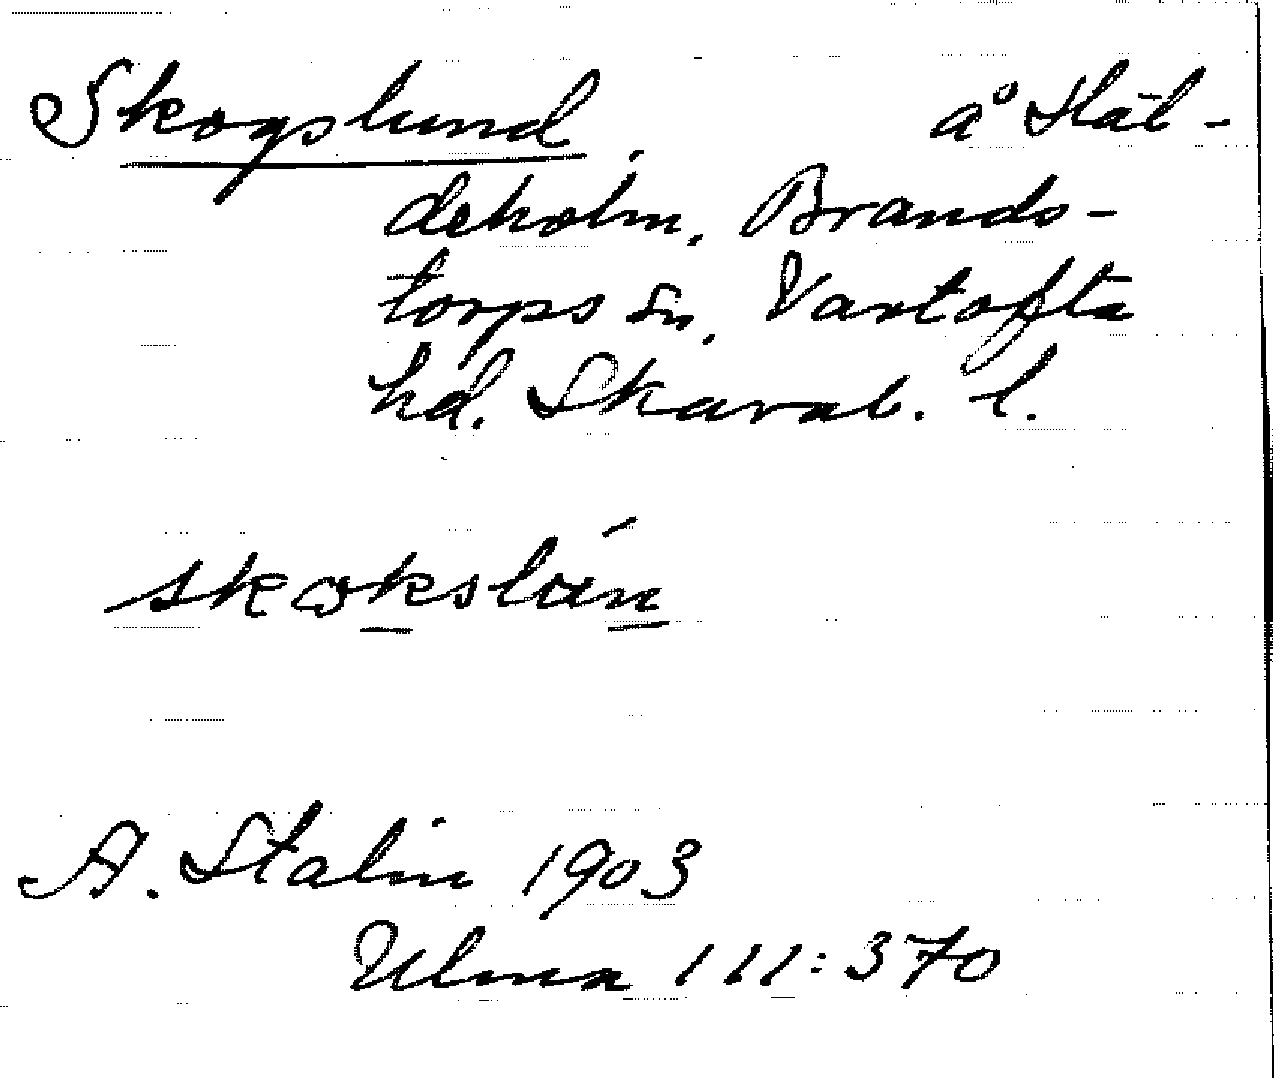 Skogslund å Häl-
deholm, Brands-
torps sn, Vartofta
hd. Skarab. l.
skokslún
A. Stalin 1903
Ulma 111:370